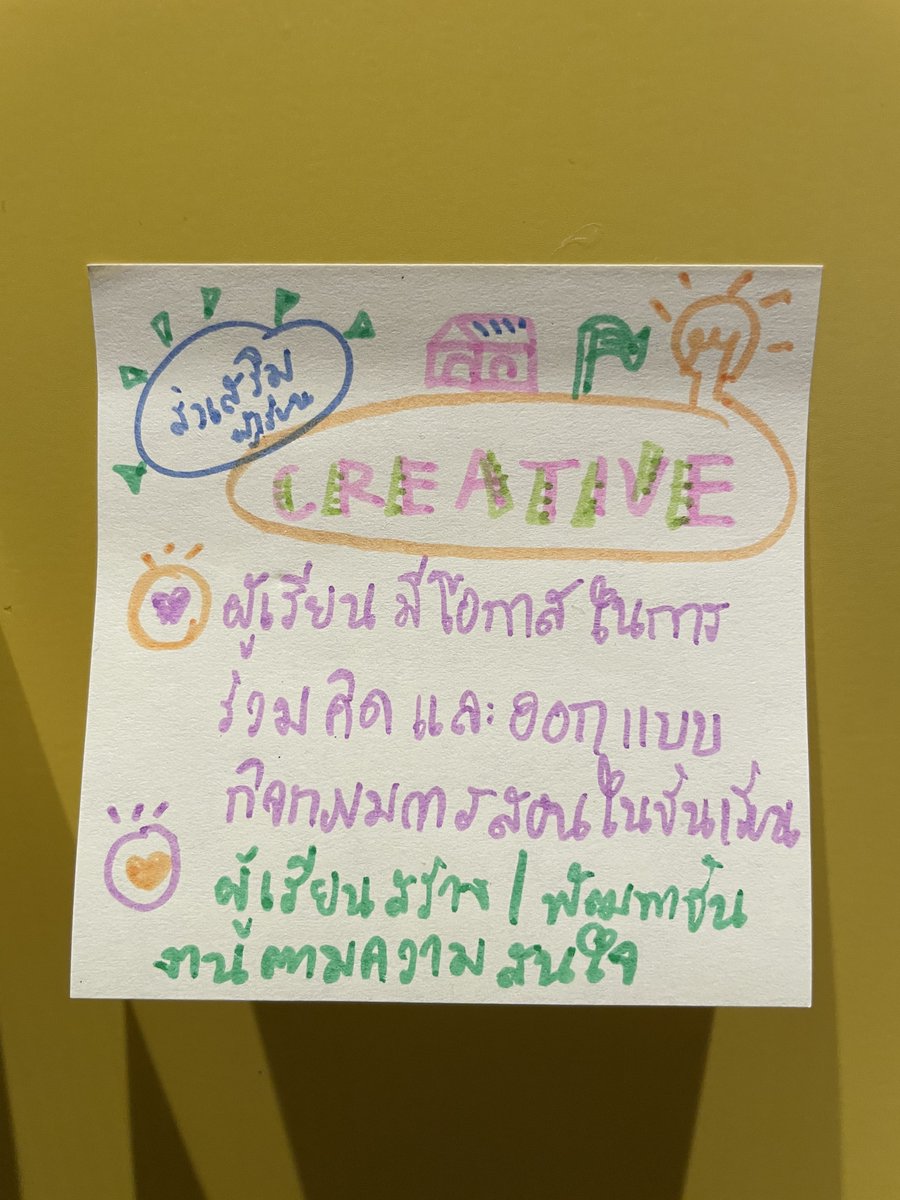 ส่งเสริม
ผู้เรียน
CREATIVE
ผู้เรียน มีโอกาส ในการ
ร่วม คิด และ ออกแบบ
กิจกรรมการสอนในชั้นเรียน
ผู้เรียน สร้าง / พัฒนาชิ้น
งานตามความ สนใจ